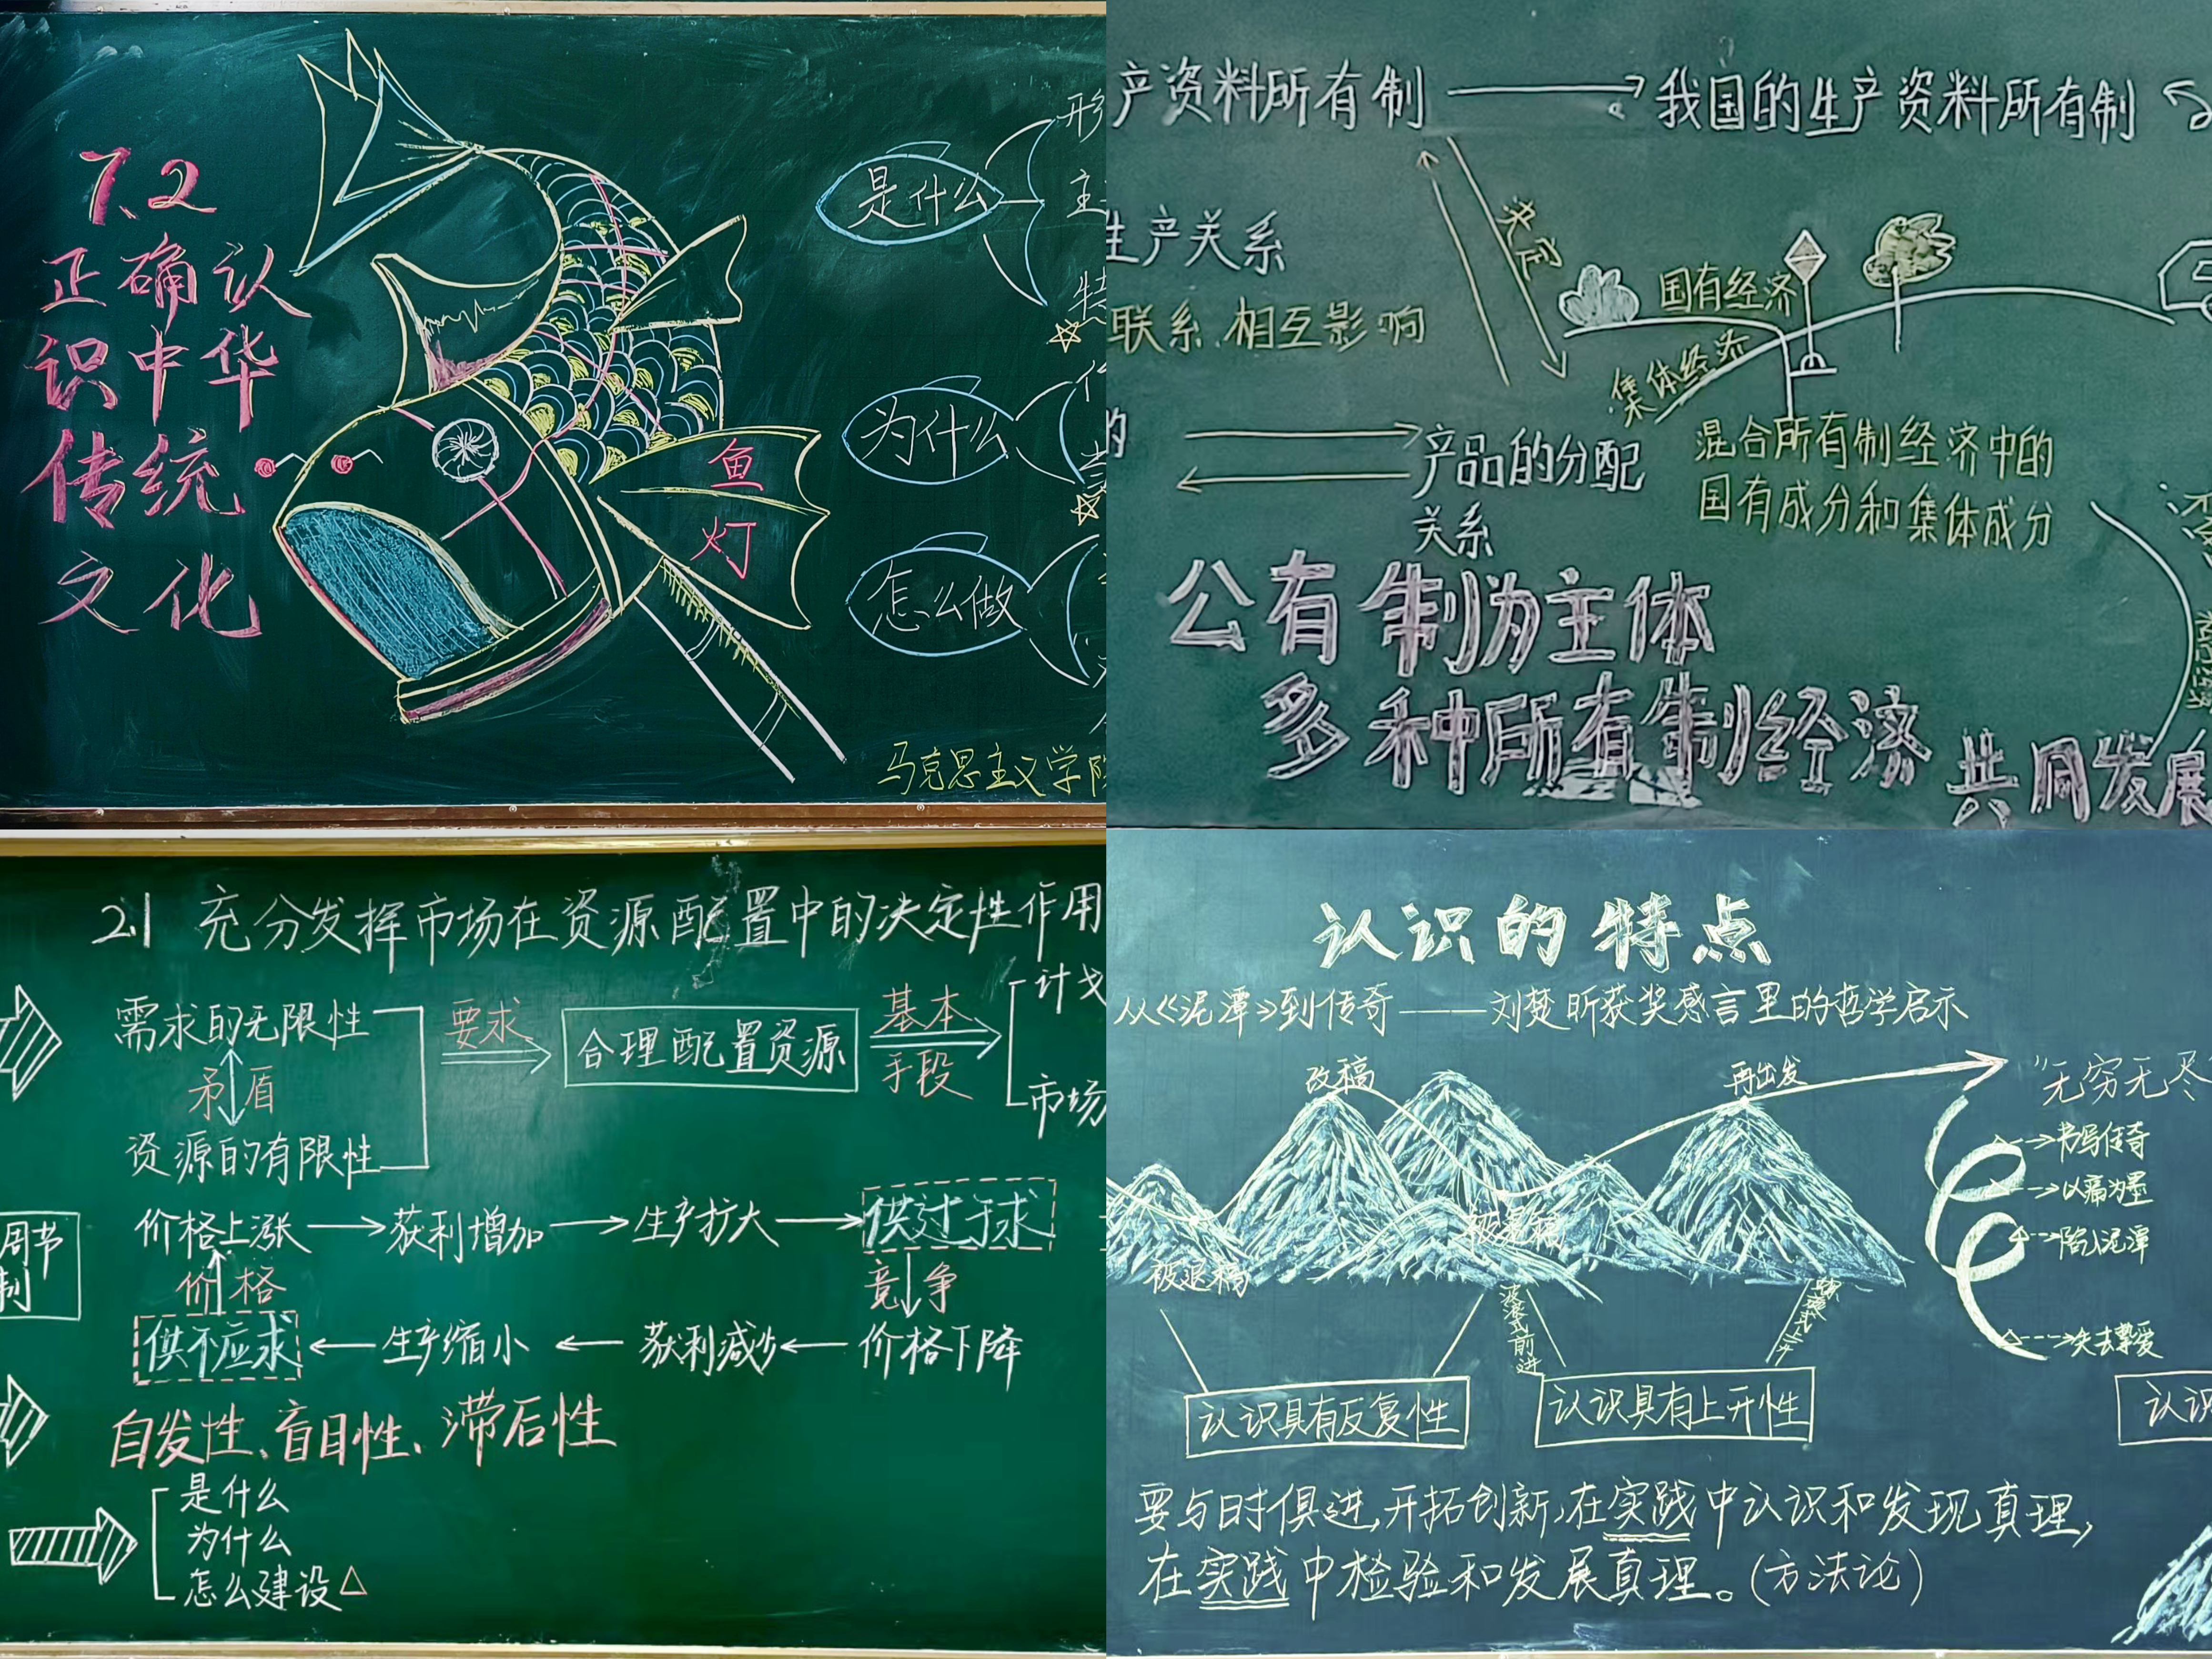 7.2
正确认
识中华
传统
文化
鱼
灯
是什么
为什么
怎么做
马克思主义学
产资料所有制
我国的生产资料所有制
决定
生产关系
联系、相互影响
国有经济
集体经济
产品的分配
关系
混合所有制经济中的
国有成分和集体成分
公有制为主体
多种所有制经济
共同发展
2.1 充分发挥市场在资源配置中的决定性作用
需求的无限性
矛盾
资源的有限性
要求
合理配置资源
基本
手段
计划
市场
价格上涨
获利增加
生产扩大
供过于求
价格
竞争
周节
制
供不应求
生产缩小
获利减少
价格下降
自发性、盲目性、滞后性
是什么
为什么
怎么建设
认识的特点
从《泥潭》到传奇——刘楚昕获奖感言里的哲学启示
改稿
再出发
"无穷无尽
书写传奇
以痛为墨
陷入泥潭
失去挚爱
被退稿
被退稿
波浪式前进
认识具有反复性
认识具有上升性
认识
要与时俱进,开拓创新,在实践中认识和发现真理,
在实践中检验和发展真理。(方法论)